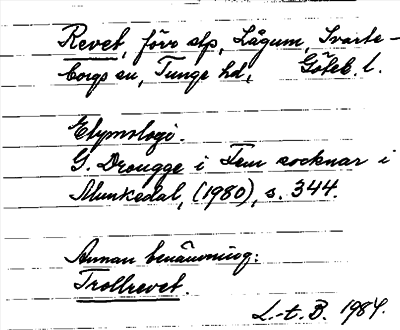 Revet, förv slp, Lågum, Svarte-
borgs sn, Tunge hd, Göteb. l.
Etymologi.
G. Drougge i Fem socknar i
Munkedal, (1980), s. 344.
Annan benämning:
Trollrevet.
L.-t. B. 1984.